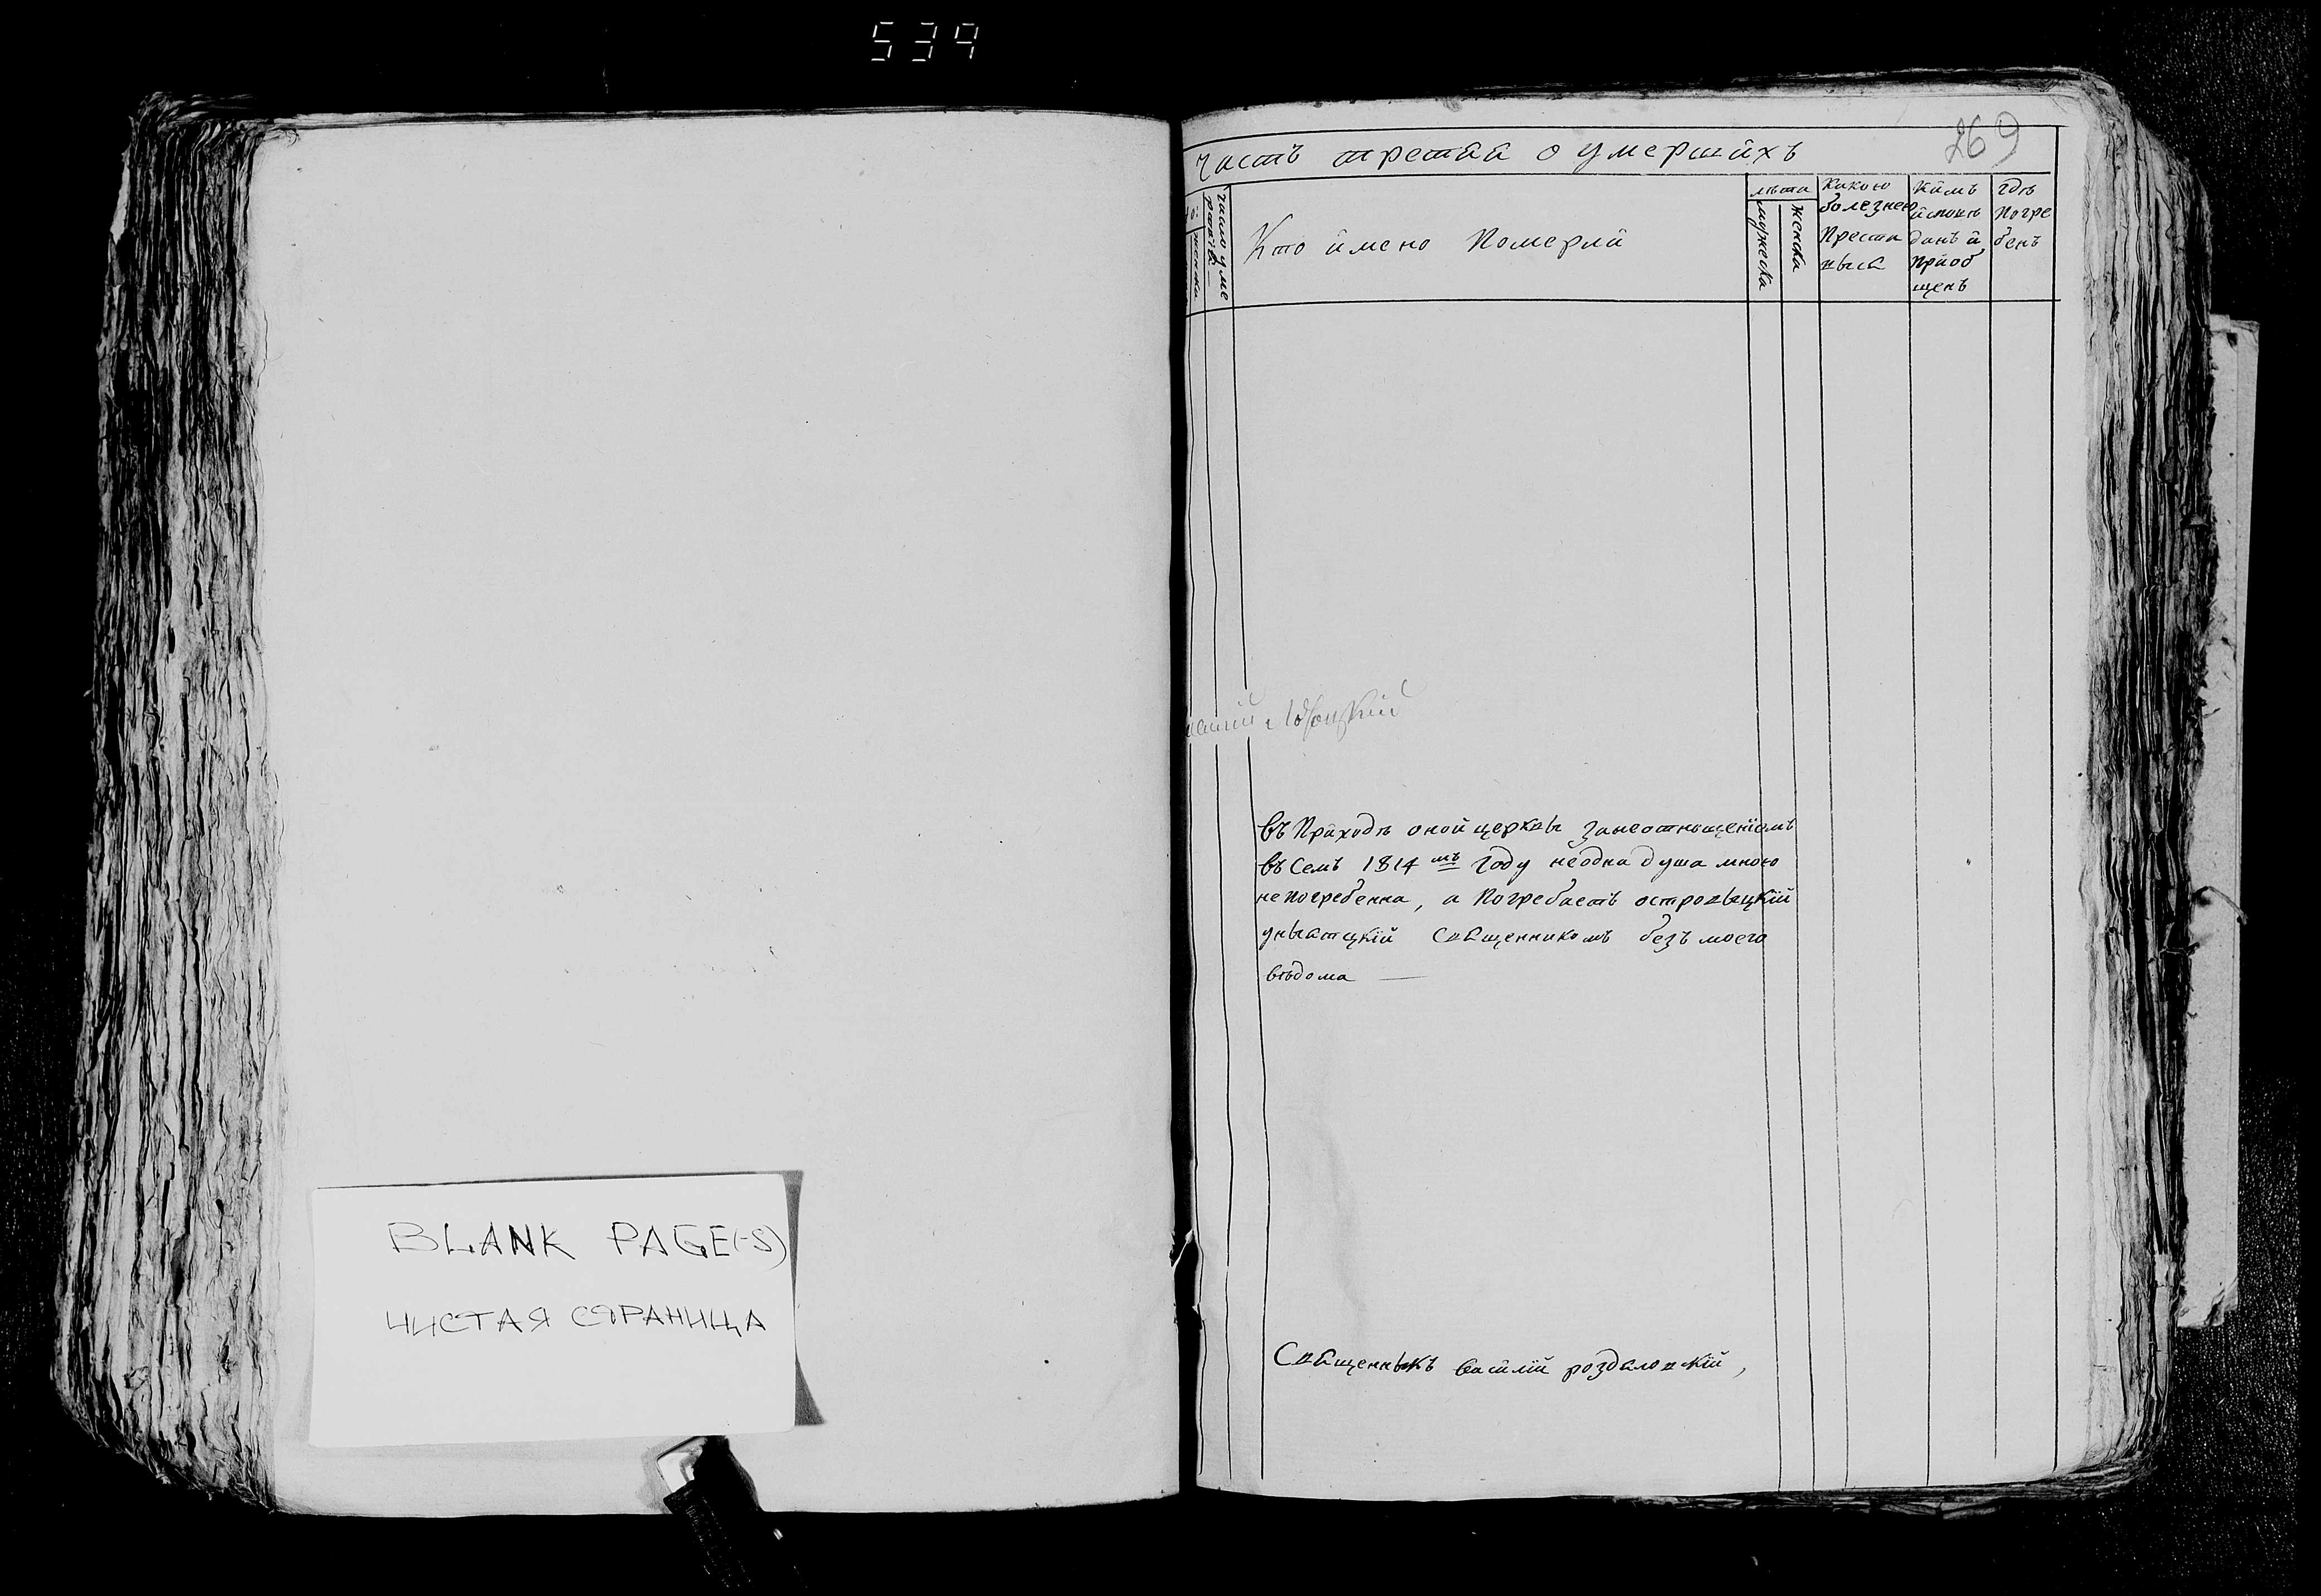 539
BLANK PAGE(-S)
ЧИСТАЯ СТРАНИЦА
269
часть третая о умершихъ
число уме
женска
Кто имено Померли
лѣта
мужеска
женска
Какою
болезнею
Преста
выся
Кимъ
исповѣ
данъ и
приоб
щенъ
гдѣ
Погре
бенъ
въ Приходѣ оной церквы
въ семъ 1814 мъ году неодна душа мною
непогребенна, а Погребаетъ
уныатцкій Священникомъ безъ моего
вѣдома —
Священныкъ Василій роздаловскій,